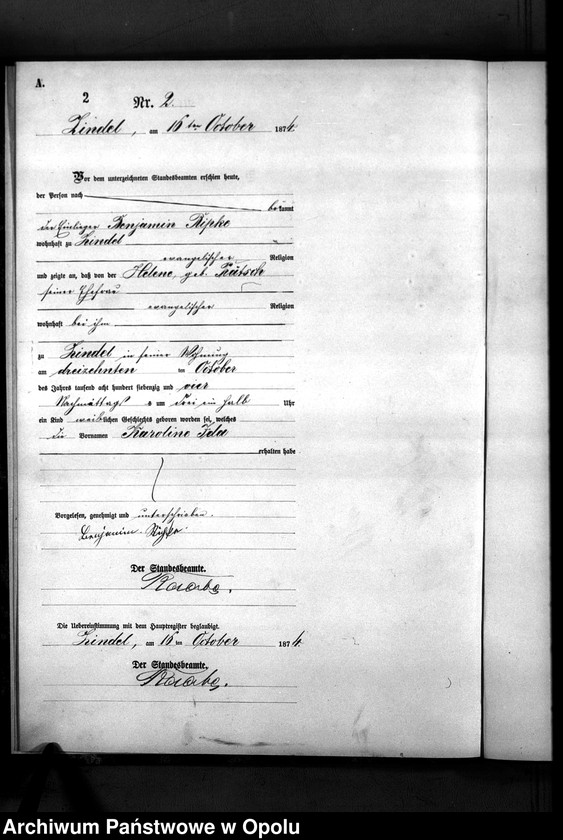 A.
2
Nr. 2.
Zindel, am 16 ten October 1874.
Vor dem unterzeichneten Standesbeamten erschien heute,
der Person nach
bekannt
der Einlieger Benjamin Ripke
wohnhaft zu Zindel
evangelischer Religion
und zeigte an, daß von der Helene, geb.
seiner Ehefrau
evangelischer Religion
wohnhaft bei ihm
zu Zindel in seiner Wohnung
am dreizehnten ten October
des Jahres tausend acht hundert siebenzig und vier
Nachmittags um drei ein halb Uhr
ein Kind weiblichen Geschlechts geboren worden sei, welches
die Vornamen Karoline Ida
erhalten habe
Vorgelesen, genehmigt und unterschrieben.
Benjamin Ripke
Der Standesbeamte.
Die Uebereinstimmung mit dem Hauptregister beglaubigt.
Zindel, am 16 ten October 1874.
Der Standesbeamte.
Archiwum Państwowe w Opolu